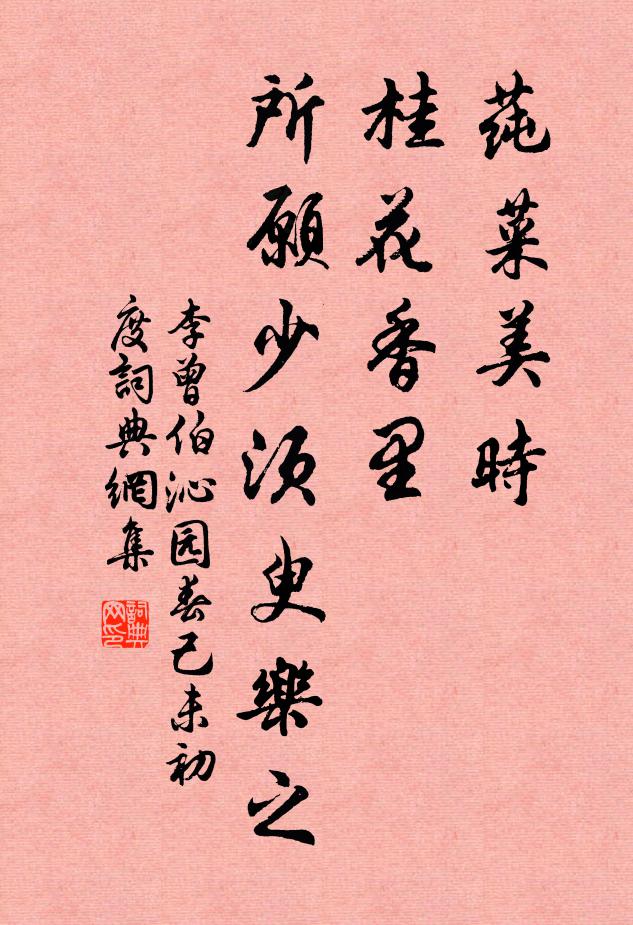 莼菜美時
桂花香里
所願少須臾樂之
李曾伯沁园春己未初
度詞典網集
詞典网印